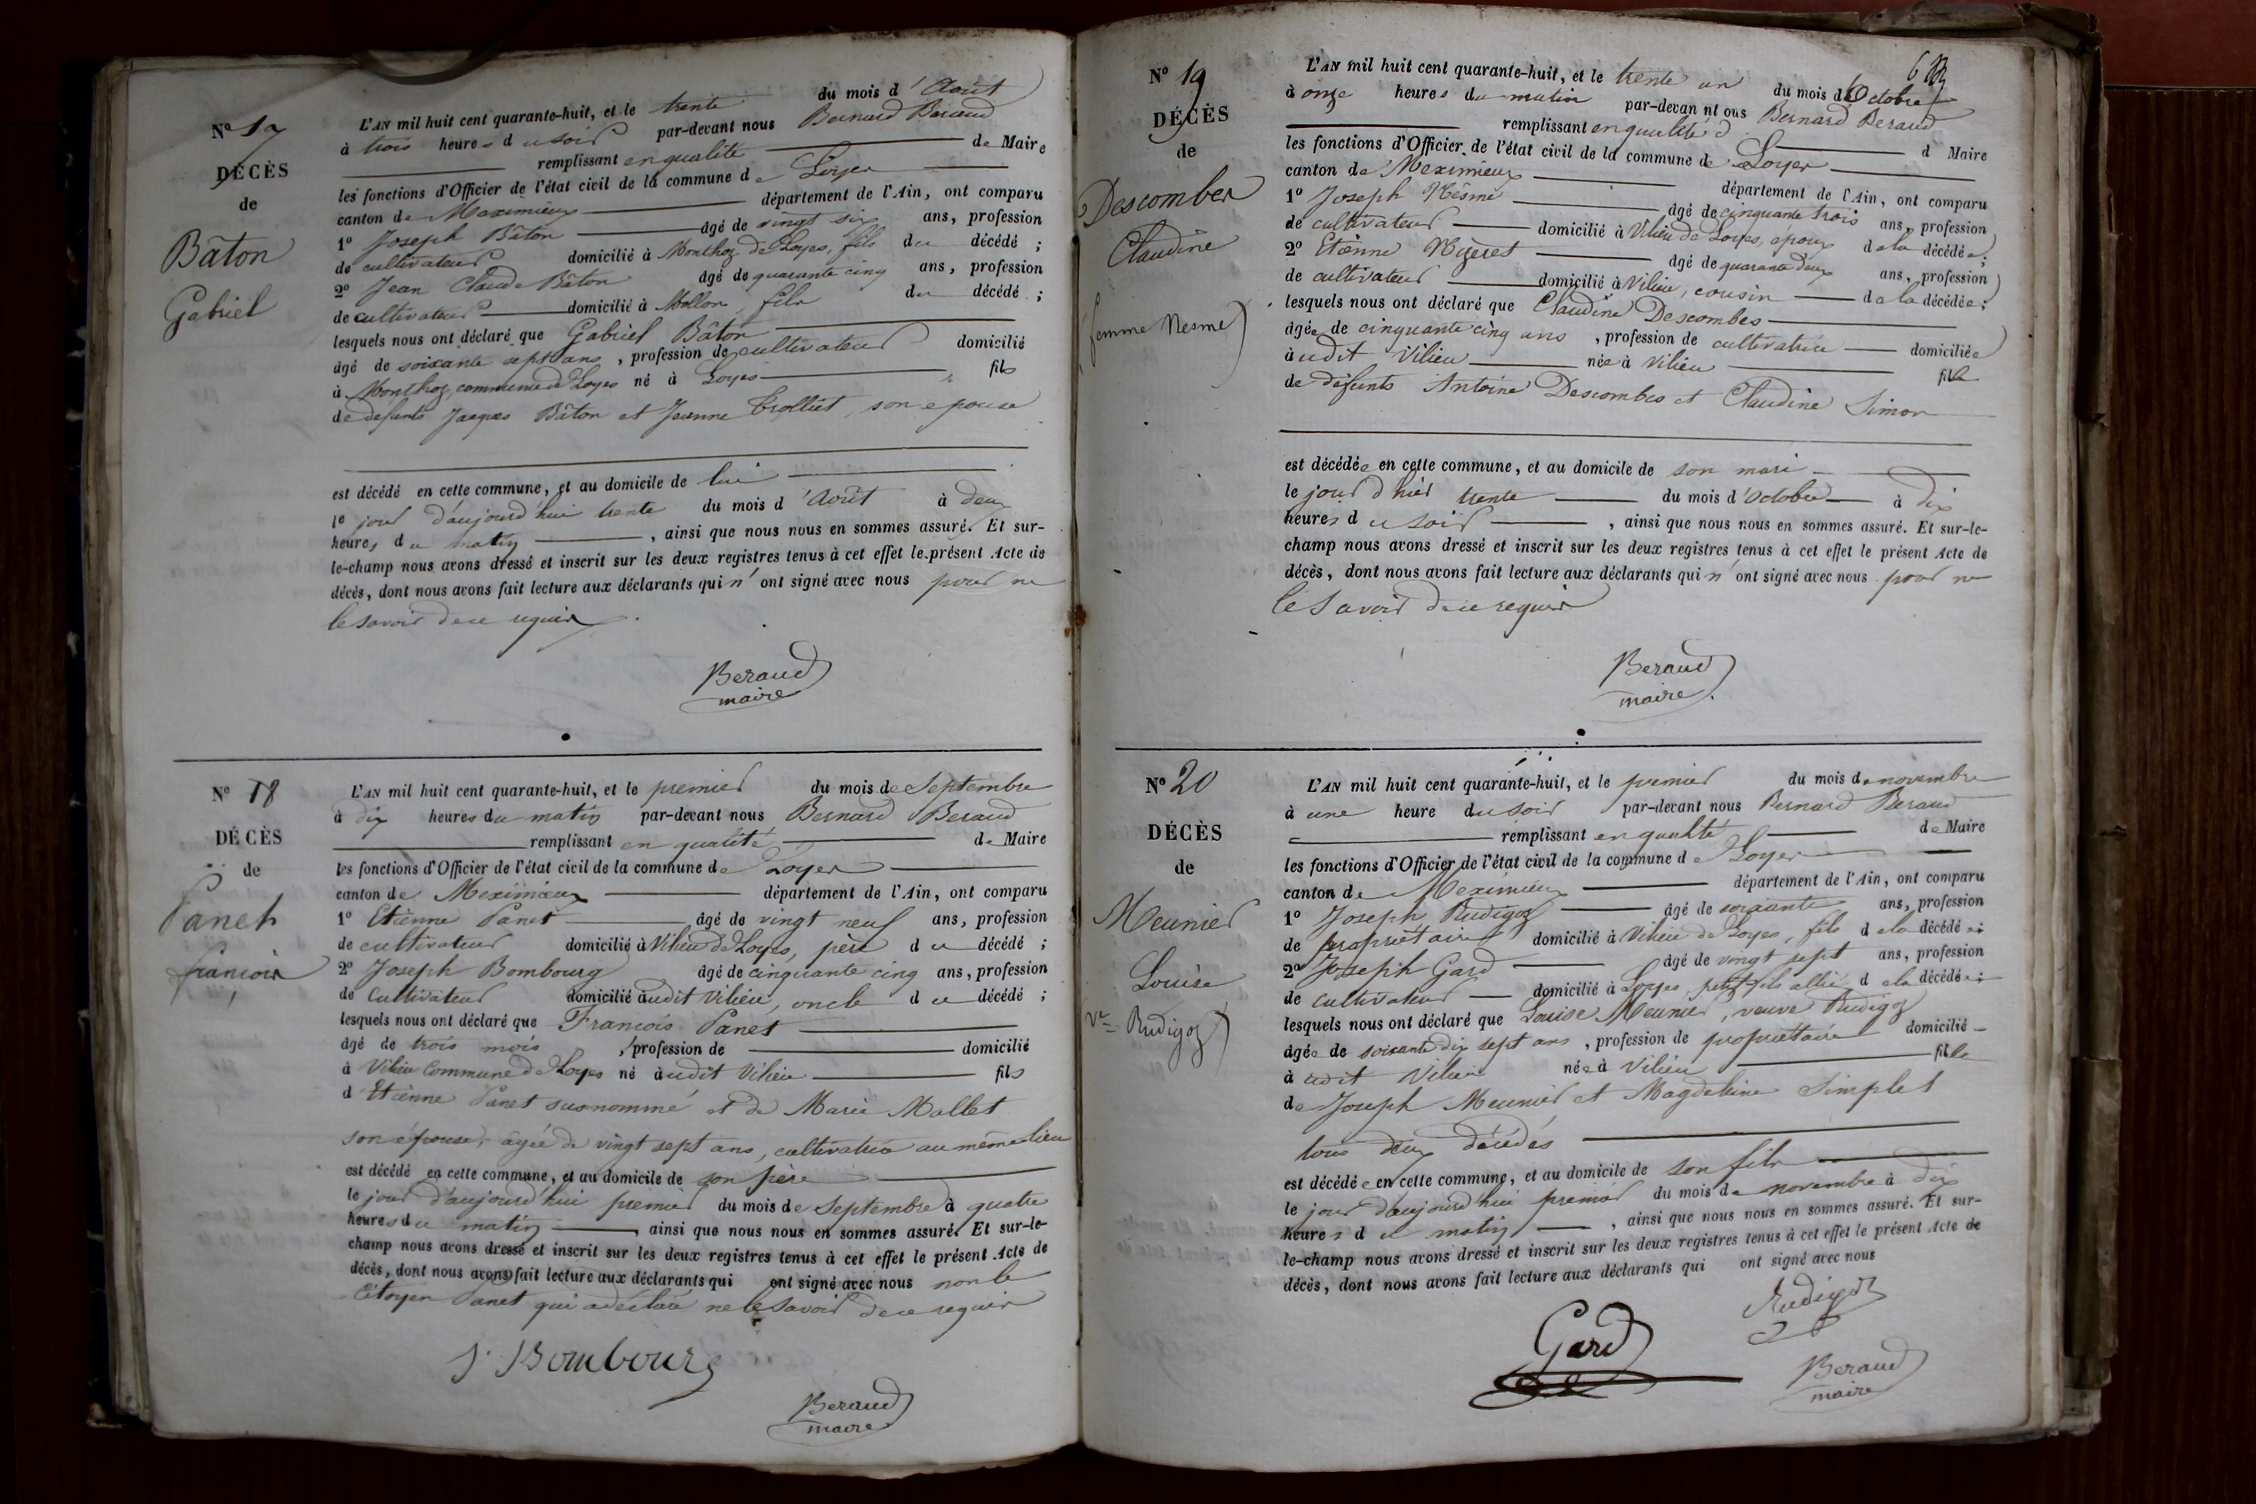 N° 17
DÉCÈS
de
Bâton
Gabriel
L'AN mil huit cent quarante-huit, et le trente du mois d'Août
à trois heures du soir par-devant nous Bernard Beraud
remplissant en qualité de Maire
les fonctions d'Officier de l'état civil de la commune de Loyes
canton de Meximieux département de l'Ain, ont comparu
1° Joseph Bâton âgé de vingt six ans, profession
de cultivateur domicilié à Monthoz de Loyes, fils du décédé ;
2° Jean Claude Bâton âgé de quarante cinq ans, profession
de cultivateur domicilié à Mollon, fils du décédé ;
lesquels nous ont déclaré que Gabriel Bâton
âgé de soixante sept ans, profession de cultivateur domicilié
à Monthoz, commune de Loyes né à Loyes fils
de defunts Jacques Bâton et Jeanne Trolliet, son epouse
est décédé en cette commune, et au domicile de lui
le jour d'aujourd'hui trente du mois d'Août à deux
heures du matin, ainsi que nous nous en sommes assuré. Et sur-
le-champ nous avons dressé et inscrit sur les deux registres tenus à cet effet le présent Acte de
décès, dont nous avons fait lecture aux déclarants qui n'ont signé avec nous pour ne
le savoir de ce requis
Beraud
maire
N° 18
DÉCÈS
de
Panet
françois
L'AN mil huit cent quarante-huit, et le premier du mois de Septembre
à dix heures du matin par-devant nous Bernard Beraud
remplissant en qualité de Maire
les fonctions d'Officier de l'état civil de la commune de Loyes
canton de Meximieux département de l'Ain, ont comparu
1° Etienne Panet âgé de vingt neuf ans, profession
de cultivateur domicilié à Vilieu de Loyes, père du décédé ;
2° Joseph Bombourg âgé de cinquante cinq ans, profession
de cultivateur domicilié audit Vilieu, oncle du décédé ;
lesquels nous ont déclaré que François Panet
âgé de trois mois, profession de domicilié
à Vilieu Commune de Loyes né audit Vilieu fils
d'Etienne Panet susnommé et de Marie Mallet
son épouse, agée de vingt sept ans, cultivatrice au même lieu
est décédé en cette commune, et au domicile de son père
le jour d'aujourd'hui premier du mois de Septembre à quatre
heures du matin ainsi que nous nous en sommes assuré. Et sur-le-
champ nous avons dressé et inscrit sur les deux registres tenus à cet effet le présent Acte de
décès, dont nous avons fait lecture aux déclarants qui ont signé avec nous non le
Citoyen Panet qui a déclaré ne le savoir de ce requis
J. Bombourg
Beraud
maire
6
N° 19
DÉCÈS
de
Descombes
Claudine
femme Nesme
L'AN mil huit cent quarante-huit, et le trente un du mois d'Octobre
à onze heures du matin par-devan nt ous Bernard Beraud
remplissant en qualité d d Maire
les fonctions d'Officier de l'état civil de la commune de Loyes
canton de Meximieux département de l'Ain, ont comparu
1° Joseph Nesme âgé de cinquante trois ans, profession
de cultivateur domicilié à Vilieu de Loyes, époux de la décédée ;
2° Etienne Mizeret âgé de quarante deux ans, profession
de cultivateur domicilié à Vilieu, cousin de la décédée ;
lesquels nous ont déclaré que Claudine Descombes
âgée de cinquante cinq ans, profession de cultivatrice domiciliée
audit Vilieu née à Vilieu fille
de défunts Antoine Descombes et Claudine Simon
est décédée en cette commune, et au domicile de son mari
le jour d'hier trente du mois d'Octobre à dix
heures du soir, ainsi que nous nous en sommes assuré. Et sur-le-
champ nous avons dressé et inscrit sur les deux registres tenus à cet effet le présent Acte de
décès, dont nous avons fait lecture aux déclarants qui n'ont signé avec nous pour ne
le savoir de ce requis
Beraud
maire.
N° 20
DÉCÈS
de
Meunier
Louise
Ve Rudigoz
L'AN mil huit cent quarante-huit, et le premier du mois de novembre
à une heure du soir par-devant nous Bernard Beraud
remplissant en qualité de Maire
les fonctions d'Officier de l'état civil de la commune de Loyes
canton de Meximieux département de l'Ain, ont comparu
1° Joseph Rudigoz âgé de soixante ans, profession
de propriétaire domicilié à Vilieu de Loyes, fils de la décédée ;
2° Joseph Gard âgé de vingt sept ans, profession
de cultivateur domicilié à Loyes petit fils allié de la décédée ;
lesquels nous ont déclaré que Louise Meunier, veuve Rudigoz
âgée de soixante dix sept ans, profession de propriétaire domicilié
à udit Vilieu née à Vilieu fille
de Joseph Meunier et Magdeleine Simplet
tous deux décédés
est décédée en cette commune, et au domicile de son fils
le jour d'aujourd'hui premier du mois de novembre à dix
heures du matin, ainsi que nous nous en sommes assuré. Et sur-
le-champ nous avons dressé et inscrit sur les deux registres tenus à cet effet le présent Acte de
décès, dont nous avons fait lecture aux déclarants qui ont signé avec nous
Rudigoz
Gard
Beraud
maire